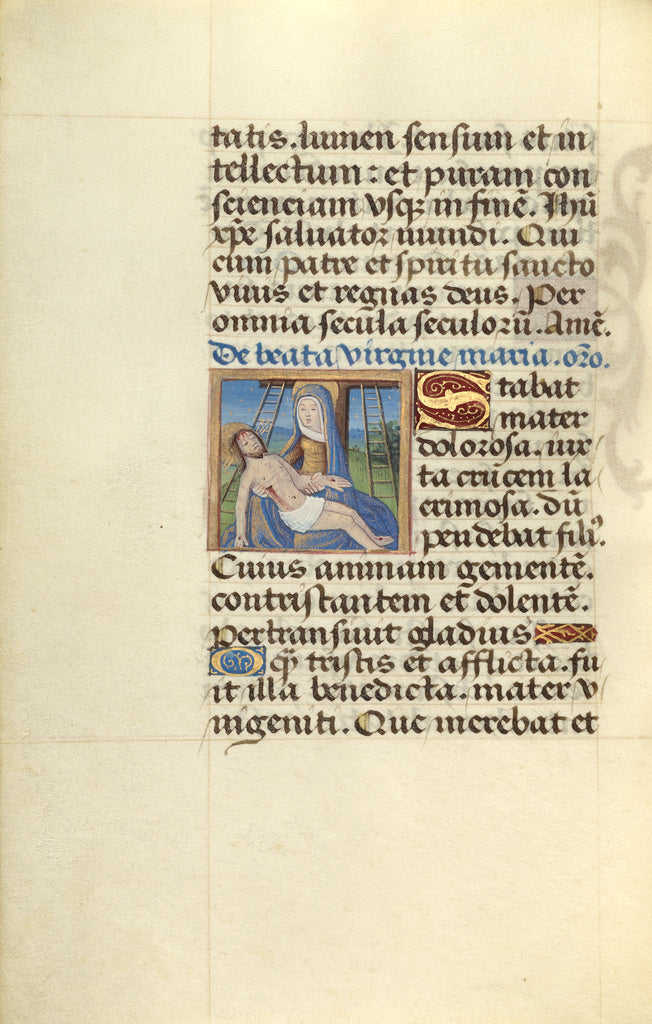 tatis. lumen sensum et in
tellectum: et puram con
scienciam vsqꝫ in finē. Jhū
xp̄e saluator mundi. Qui
cum patre et spiritu sancto
viuis et regnas deus. Per
omnia secula seculorū. Amē.
De beata virgine maria. orō.
Stabat
mater
dolorosa. iux
ta crucem la
crimosa. dū
pendebat filiꝰ.
Cuius animam gementē.
contristantem et dolentē.
pertransiuit gladius
O qͣ tristis et afflicta. fu
it illa benedicta. mater v
nigeniti. Que merebat et